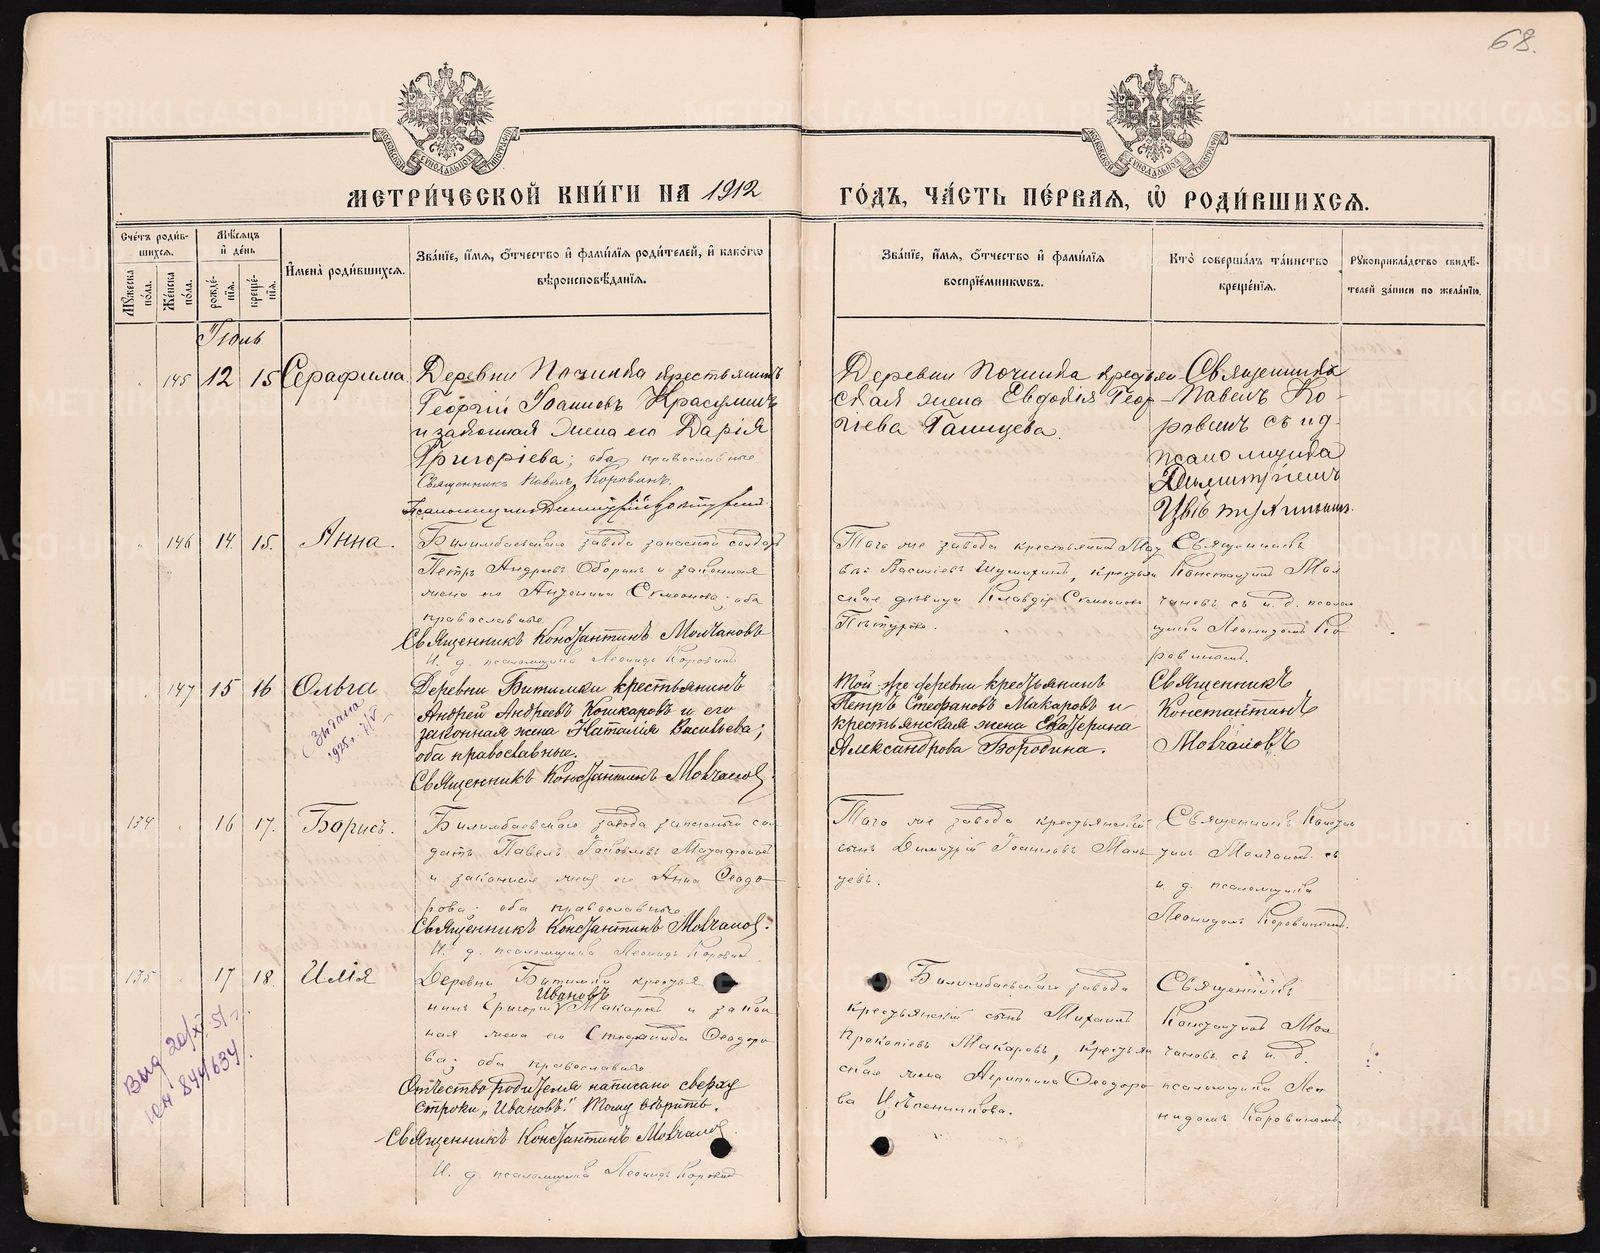 68.
МЕТРИ́ЧЕСКОЙ КНИ́ГИ НА 1912
ГО́ДЪ, ЧА́СТЬ ПЕ́РВАѦ, Ѽ РОДИ́ВШИХСѦ.
Сче́тъ роди́в-
шихсѧ.
Мѣ́сѧцъ
и҆ де́нь
Мꙋ́жеска по́ла.
Же́нска по́ла.
рожде́-
нїѧ.
креще́-
нїѧ.
И҆мена̀ роди́вшихсѧ.
Зва́нїе, и҆́мѧ, ѻ҆́тчество и҆ фами́лїѧ роди́телей, и҆ како́гѡ
вѣроисповѣ́данїѧ.
Зва́нїе, и҆́мѧ, ѻ҆́тчество и҆ фами́лїѧ
воспрїе́мникѡвъ.
Кто̀ соверша́лъ та́инство
креще́нїѧ.
Рꙋкоприкла́дство свидѣ́-
телей за́писи по жела́нїю.
Іюль
145 12 15 Серафима
Деревни Починка крестьянинъ
Георгій Іоанновъ Красулинъ
и законная жена его Дарія
Григоріева; оба православные
Священникъ Павелъ Коровинъ.
Псаломщикъ Димитрій
Деревни Починка крестьян
ская жена Евдокія Геор-
гіева Галицева.
Священникъ
Павелъ Ко-
ровинъ съ и.д.
псаломщика
Димитріемъ
146 14. 15. Анна.
Билимбаевскаго завода запасной солдатъ
Петръ Андреевъ Оборинъ и законная
жена его Антонина Симеонова; оба
православные
Священникъ Константинъ Молчановъ
И. д. псаломщика Леонидъ Коровинъ
Того же завода крестьянинъ
Василіевъ Шумихинъ, крестьян
ская дѣвица Клавдія Симеонова
Священникъ
Константинъ Мол
чановъ съ и. д. псалом
щика Леонидомъ Ко
ровинымъ.
147 15 16 Ольга
(Выдана
1925 г. 7/V
Деревни Битимки крестьянинъ
Андрей Андреевъ Кошкаровъ и его
законная жена Наталія Васильева;
оба православные.
Священникъ Константинъ Молчановъ
Той-же деревни крестьянинъ
Петръ Стефановъ Макаровъ и
крестьянская жена Екатерина
Александрова Бородина.
Священникъ
Константинъ
Молчановъ
134 16 17. Борисъ.
Билимбаевскаго завода запасный сол
датъ Павелъ Іаковлевъ
и законная жена его Анна Ѳеодо
рова; оба православные
Священникъ Константинъ Молчановъ.
И. д. псаломщика Леонидъ Коровинъ
Того же завода крестьянскій
сынъ Димитрій Іоанновъ Маль
цевъ.
Священникъ Констан
тинъ Молчановъ съ
и. д. псаломщика
Леонидомъ Коровинымъ.
135 17 18. Илія
Выд 20/XI 51 г.
Деревни Битимки крестья
Ивановъ
нинъ Григорій Макаровъ и закон
ная жена его Стефанида Ѳеодоро
ва; оба православные
Отчество родителя написано сверху
строки „Ивановъ." Тому вѣрить.
Священникъ Константинъ Молчановъ
И. д. псаломщика Леонидъ Коровинъ
Билимбаевскаго завода
крестьянскій сынъ Михаилъ
Прокопіевъ Макаровъ, крестьян
ская жена Агрипина Ѳеодоро
ва Щепенникова.
Священникъ
Константинъ Мол
чановъ съ и. д.
псаломщика Лео
нидомъ Коровинымъ.